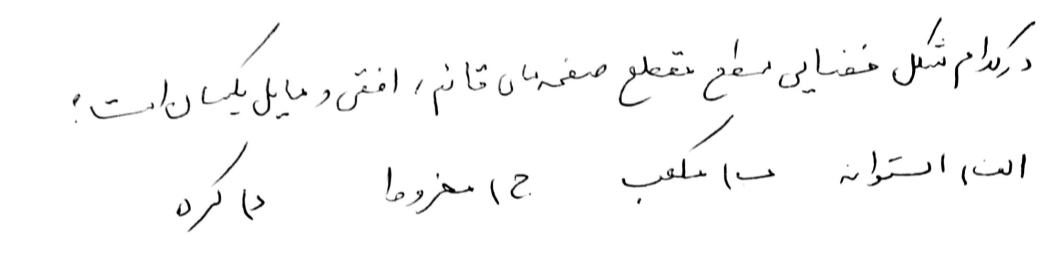 در کدام شکل فضایی سطح مقطع صفحه‌های قائم، افقی و مایل یکسان است؟
الف) استوانه ب) مکعب ج) مخروط د) کره